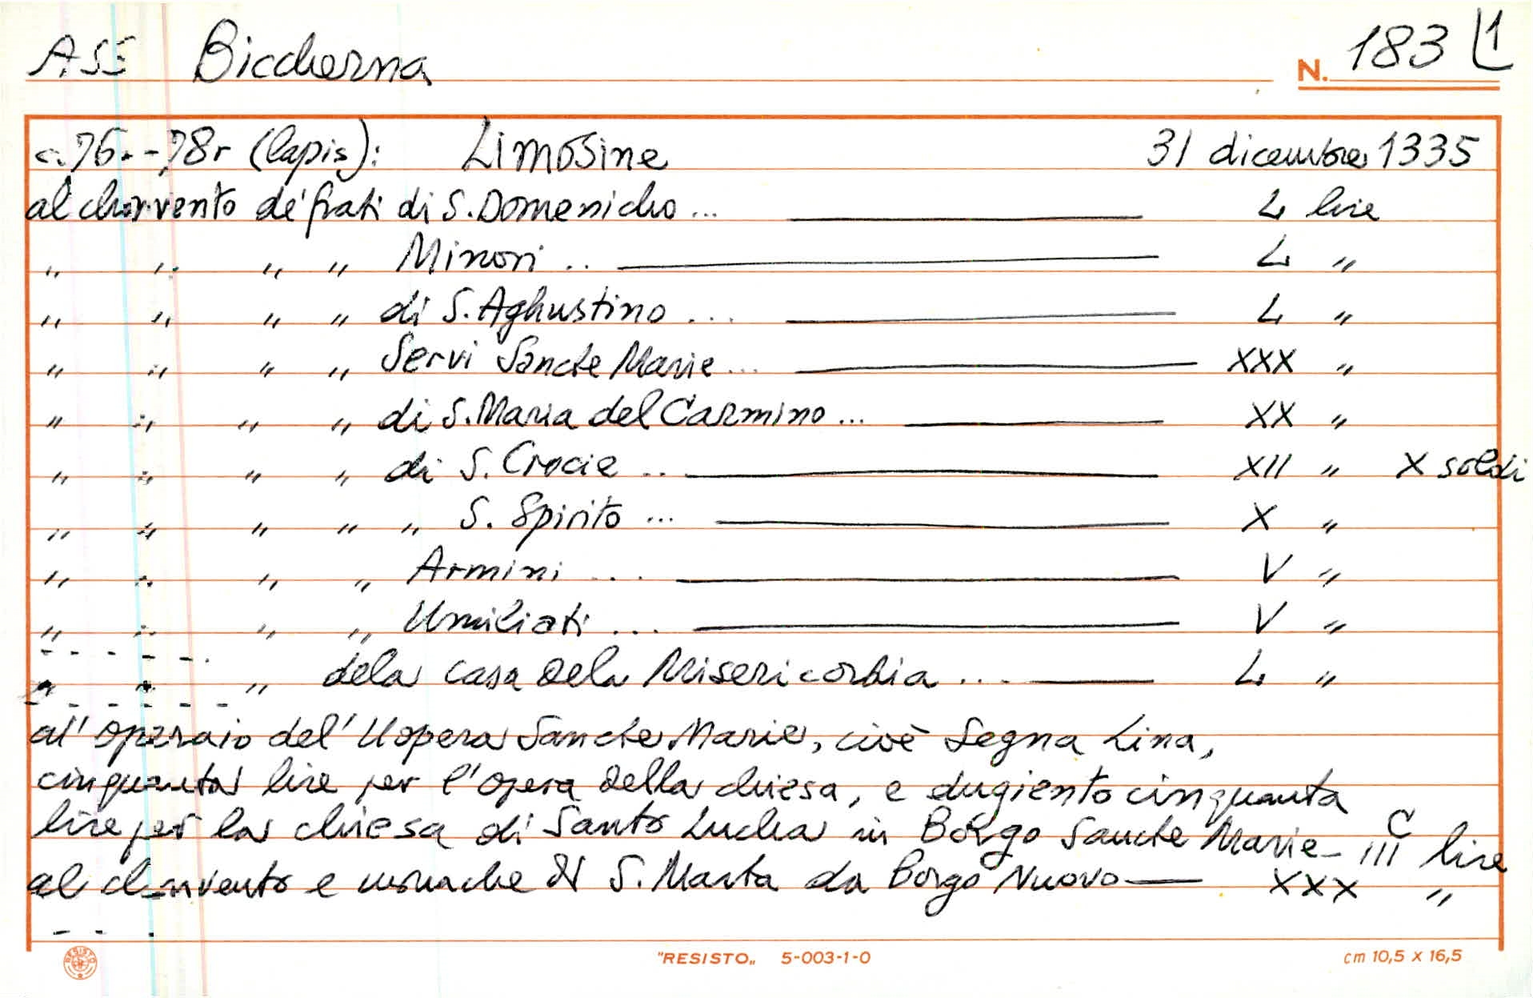 ASS Biccherna N. 183 1
c. 76. - 78r (lapis): Limosine 31 dicembre 1335
al chonvento de' frati di S. Domenicho ... L lire
" " " " Minori .. L "
" " " " di S. Aghustino ... L "
" " " " Servi Sancte Marie ... XXX "
" " " " di S. Maria del Carmino ... XX "
" " " " di S. Crocie .. XII " X soldi
" " " " " S. Spirito ... X "
" " " " Armini .... V "
" " " " Umiliati ... V "
" " " dela casa dela Misericordia ... L "
al' operaio del' Uopera Sancte Marie, cioè Segna Lina,
cinquanta lire per l'opera della chiesa, e dugiento cinquanta
lire per la chiesa di Santo Lucha in Borgo Sancte Marie - III C lire
al chonvento e monache di S. Marta da Borgo Nuovo — XXX "
RESISTO "RESISTO„ 5-003-1-0 cm 10,5 x 16,5